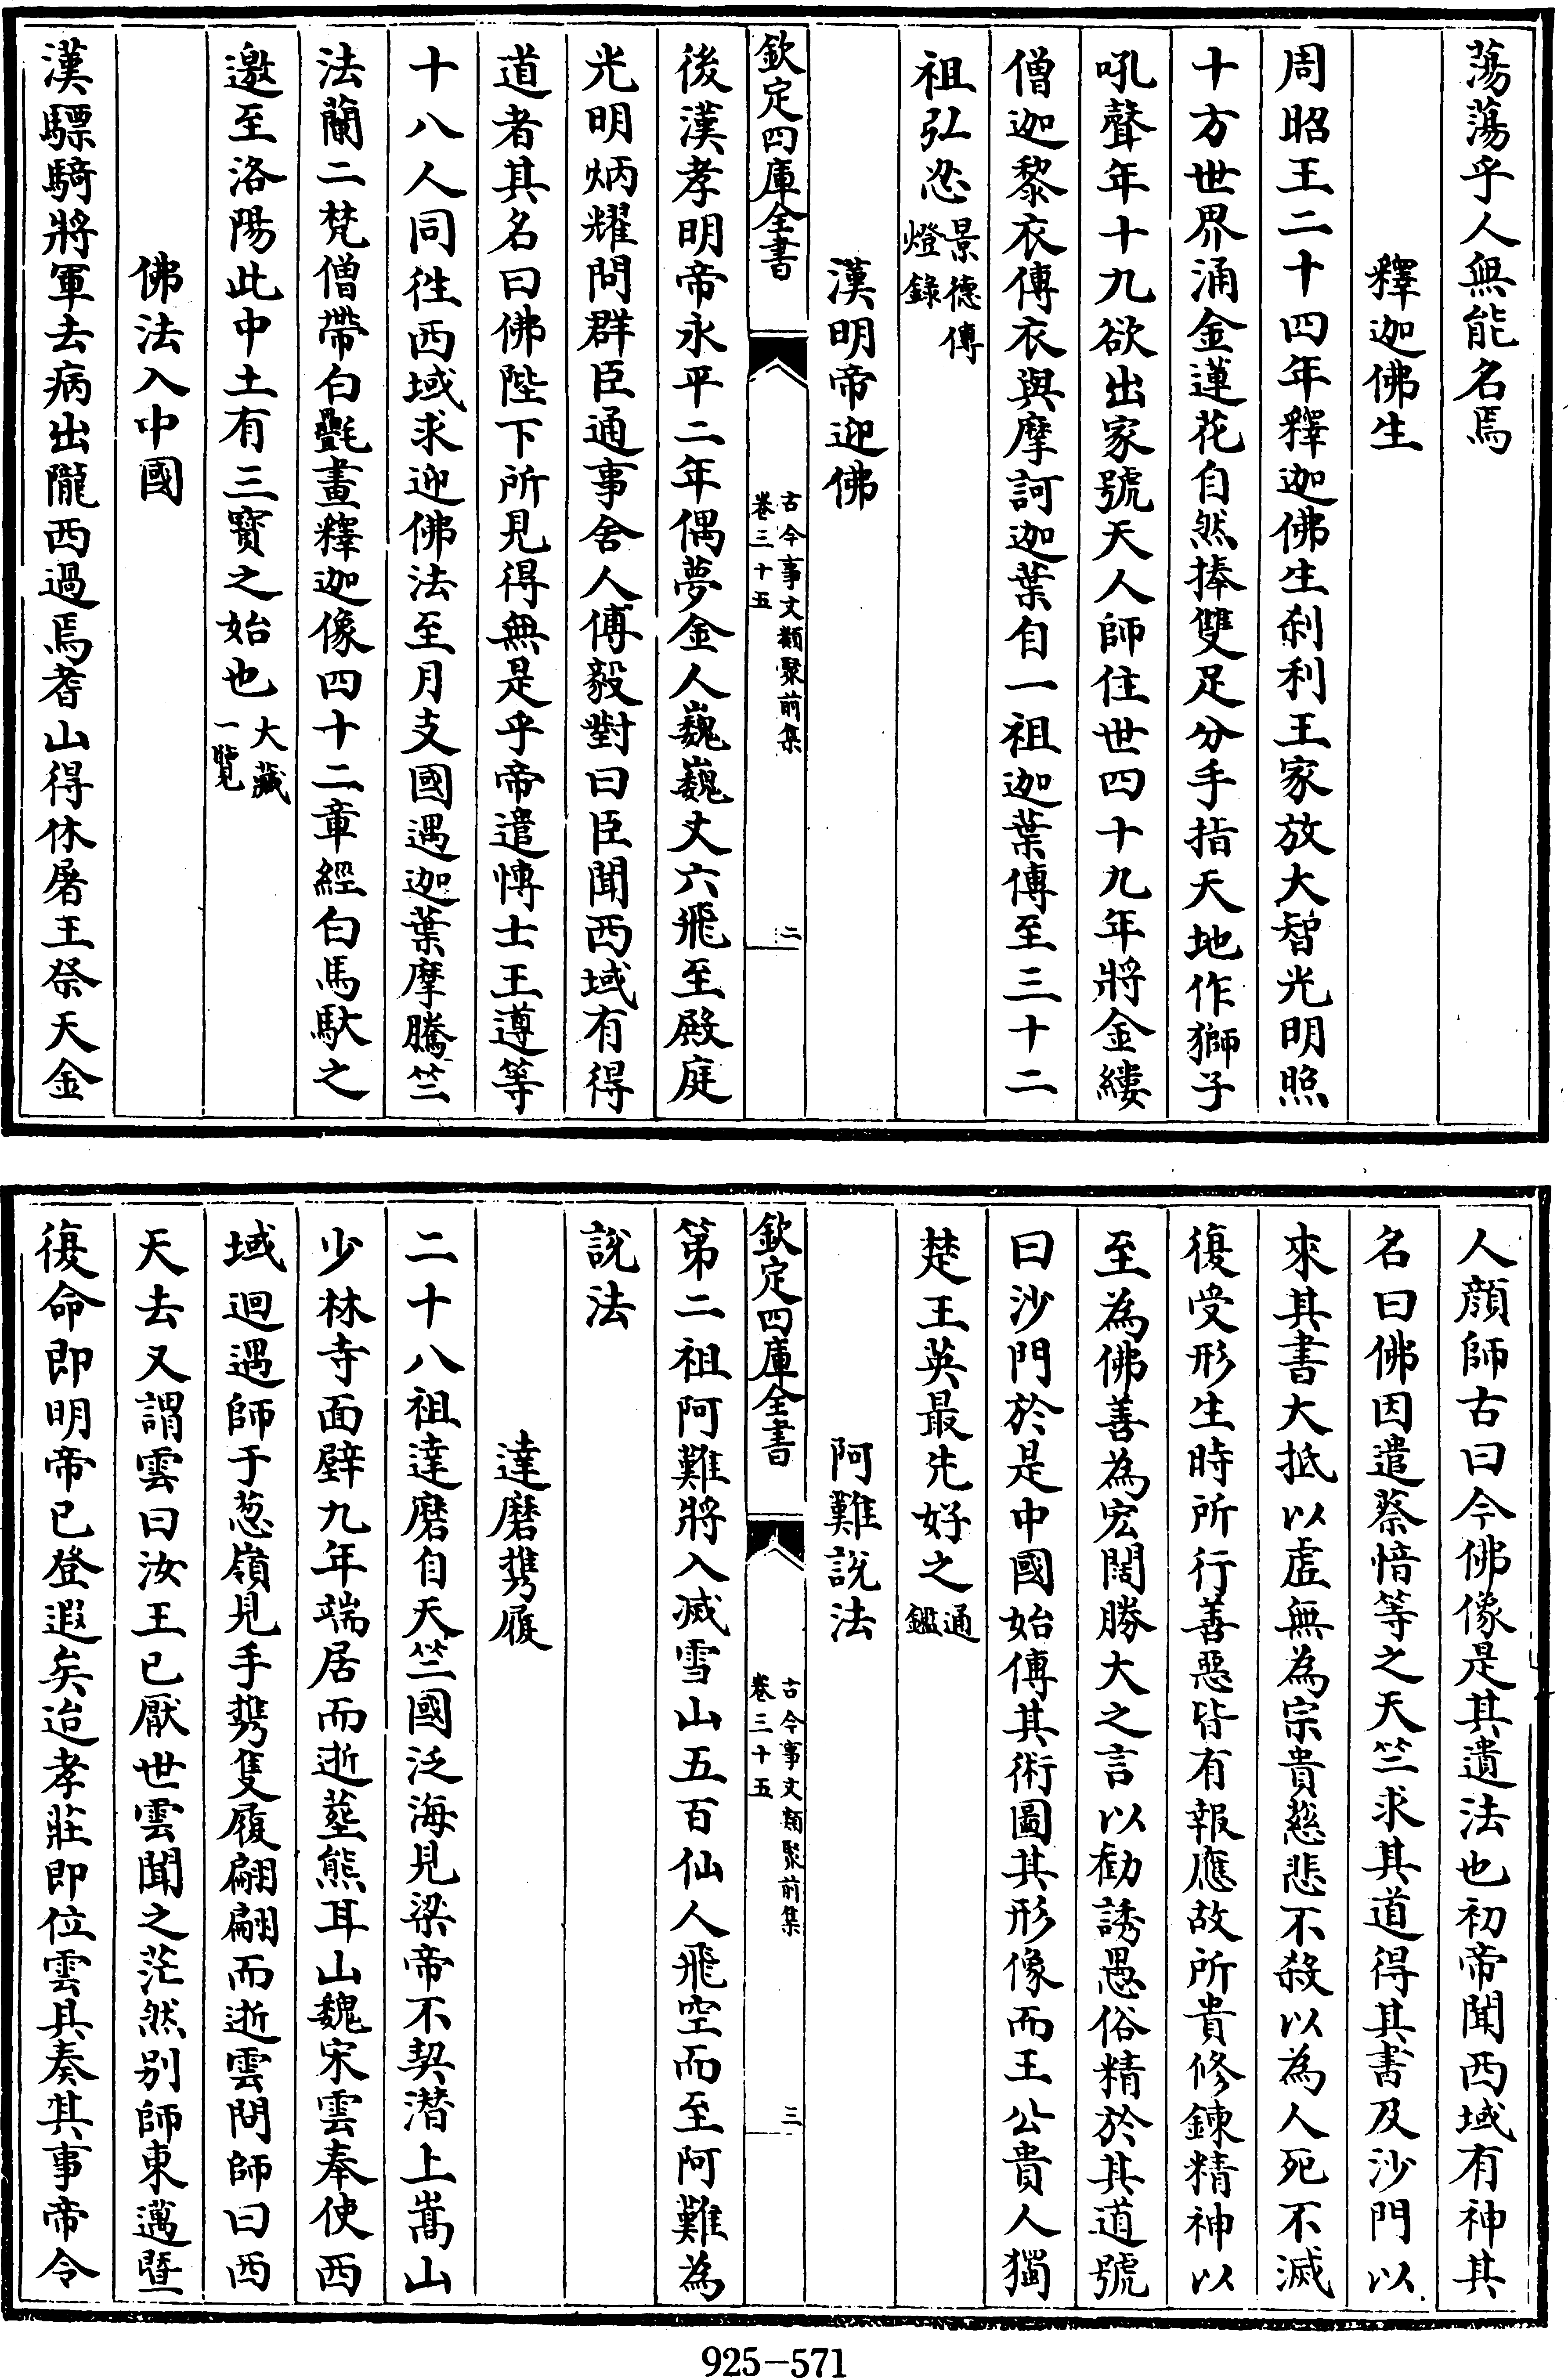 蕩蕩乎人無能名焉
釋迦佛生
周昭王二十四年釋迦佛生刹利王家放大智光明照
十方世界涌金蓮花自然捧雙足分手指天地作獅子
吼聲年十九欲出家號天人師住世四十九年將金縷
僧迦黎衣傳衣與摩訶迦葉自一祖迦葉傳至三十二
祖弘忍景德傳燈錄
漢明帝迎佛
欽定四庫全書 古今事文類聚前集 卷三十五 二
後漢孝明帝永平二年偶夢金人巍巍丈六飛至殿庭
光明炳耀問群臣通事舍人傅毅對曰臣聞西域有得
道者其名曰佛陛下所見得無是乎帝遣愽士王遵等
十八人同徃西域求迎佛法至月支國遇迦葉摩騰竺
法蘭二梵僧帶白氎畫釋迦像四十二章經白馬馱之
邀至洛陽此中土有三寶之始也大藏一覽
佛法入中國
漢驃騎將軍去病出隴西過焉耆山得休屠王祭天金
人顔師古曰今佛像是其遺法也初帝聞西域有神其
名曰佛因遣蔡愔等之天竺求其道得其書及沙門以
來其書大抵以虛無為宗貴慈悲不殺以為人死不滅
復受形生時所行善惡皆有報應故所貴修鍊精神以
至為佛善為宏闊勝大之言以勸誘愚俗精於其道號
曰沙門於是中國始傳其術圖其形像而王公貴人獨
楚王英最先好之通鑑
阿難說法
欽定四庫全書 古今事文類聚前集 卷三十五 三
第二祖阿難將入滅雪山五百仙人飛空而至阿難為
說法
達磨携履
二十八祖達磨自天竺國泛海見梁帝不契潛上嵩山
少林寺面壁九年端居而逝塟熊耳山魏宋雲奉使西
域迴遇師于葱嶺見手携隻履翩翩而逝雲問師曰西
天去又謂雲曰汝王已厭世雲聞之茫然别師東邁暨
復命即明帝已登遐矣迨孝莊即位雲具奏其事帝令
925-571